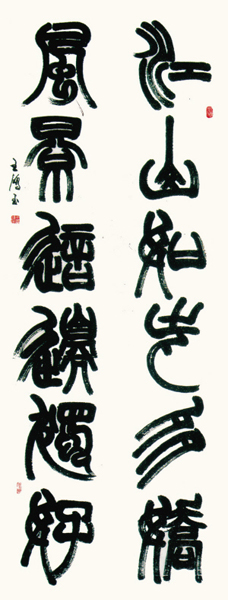 江山如此多嬌
風景這邊獨好